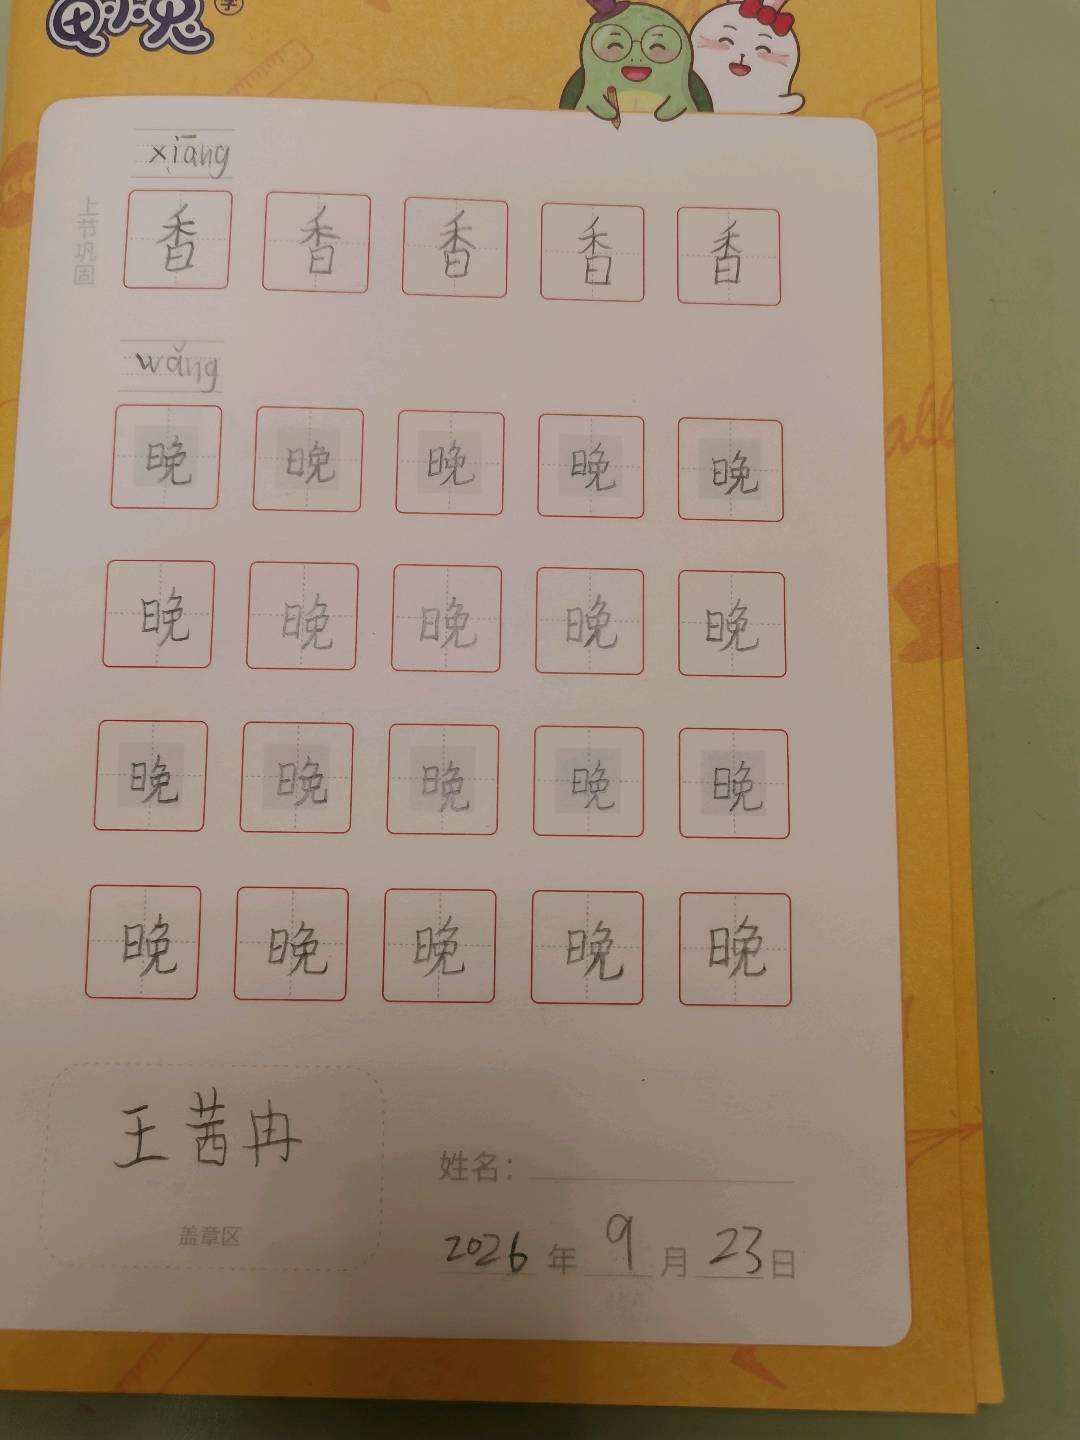 学
xiāng
上节巩固
香 香 香 香 香
wǎng
晚 晚 晚 晚 晚
晚 晚 晚 晚 晚
晚 晚 晚 晚 晚
晚 晚 晚 晚 晚
王茜冉
盖章区
姓名：
2026 年 9 月 23 日